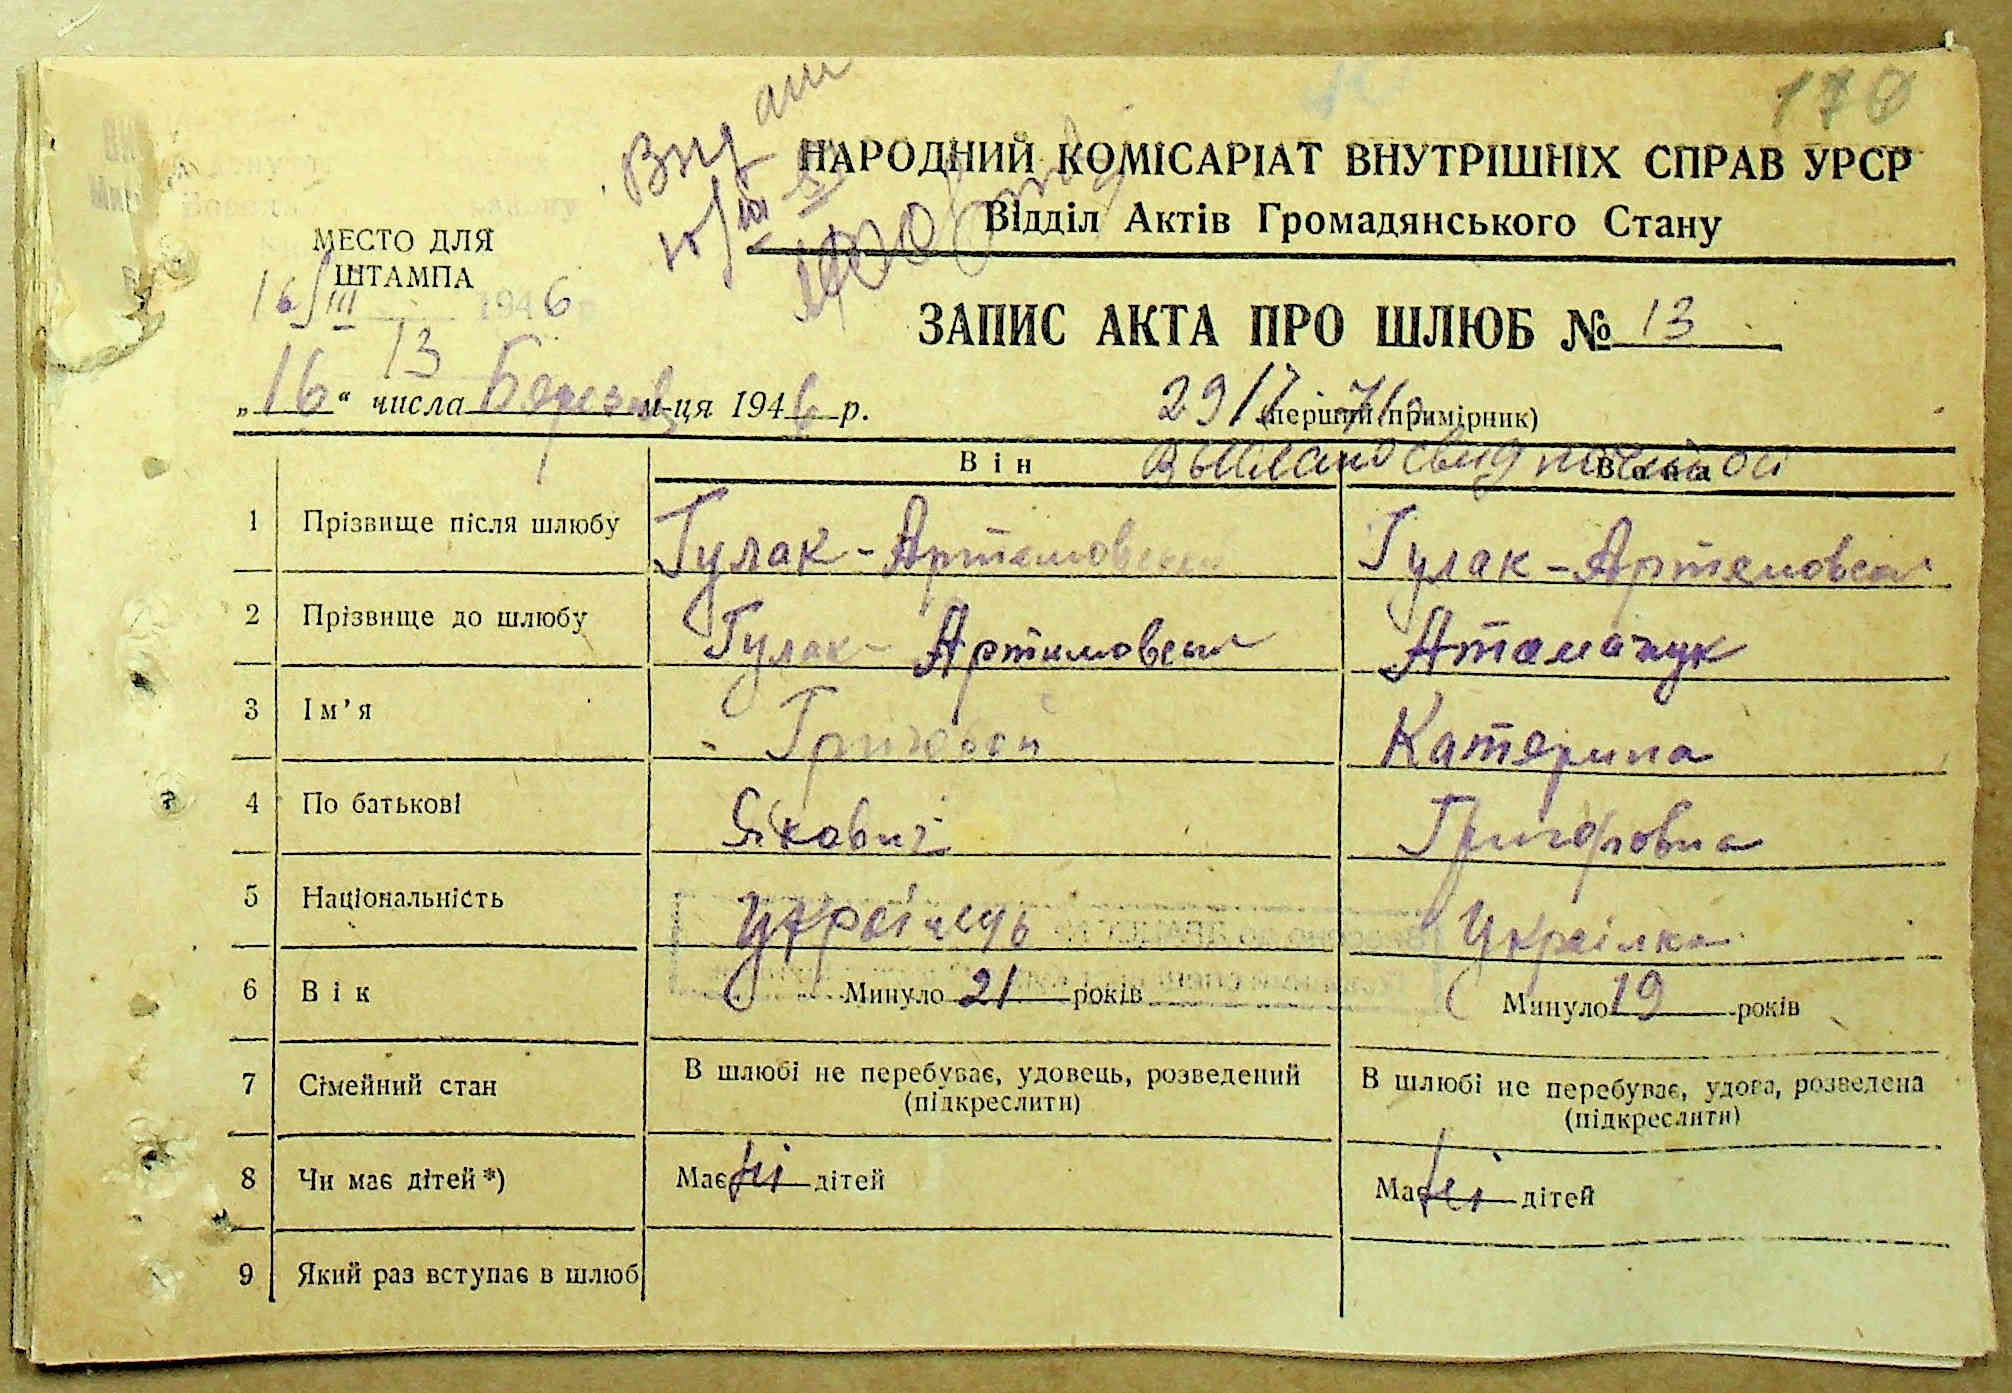 170
НАРОДНИЙ КОМІСАРІАТ ВНУТРІШНІХ СПРАВ УРСР
Відділ Актів Громадянського Стану
МЕСТО ДЛЯ
ШТАМПА
16/III 1946
13
ЗАПИС АКТА ПРО ШЛЮБ № 13
„16“ числа Березня м-ця 1946 р.
(перший примірник)
Він Вона
1 Прізвище після шлюбу Гулак-Артемовский Гулак-Артемовская
2 Прізвище до шлюбу Гулак-Артимовский Атаманчук
3 Ім'я Григорій Катерина
4 По батькові Якович Григоровна
5 Національність Українець Українка
6 Вік Минуло 21 років Минуло 19 років
7 Сімейний стан В шлюбі не перебуває, удовець, розведений В шлюбі не перебуває, удова, розведена
(підкреслити) (підкреслити)
8 Чи має дітей *) Має ні дітей Має ні дітей
9 Який раз вступає в шлюб